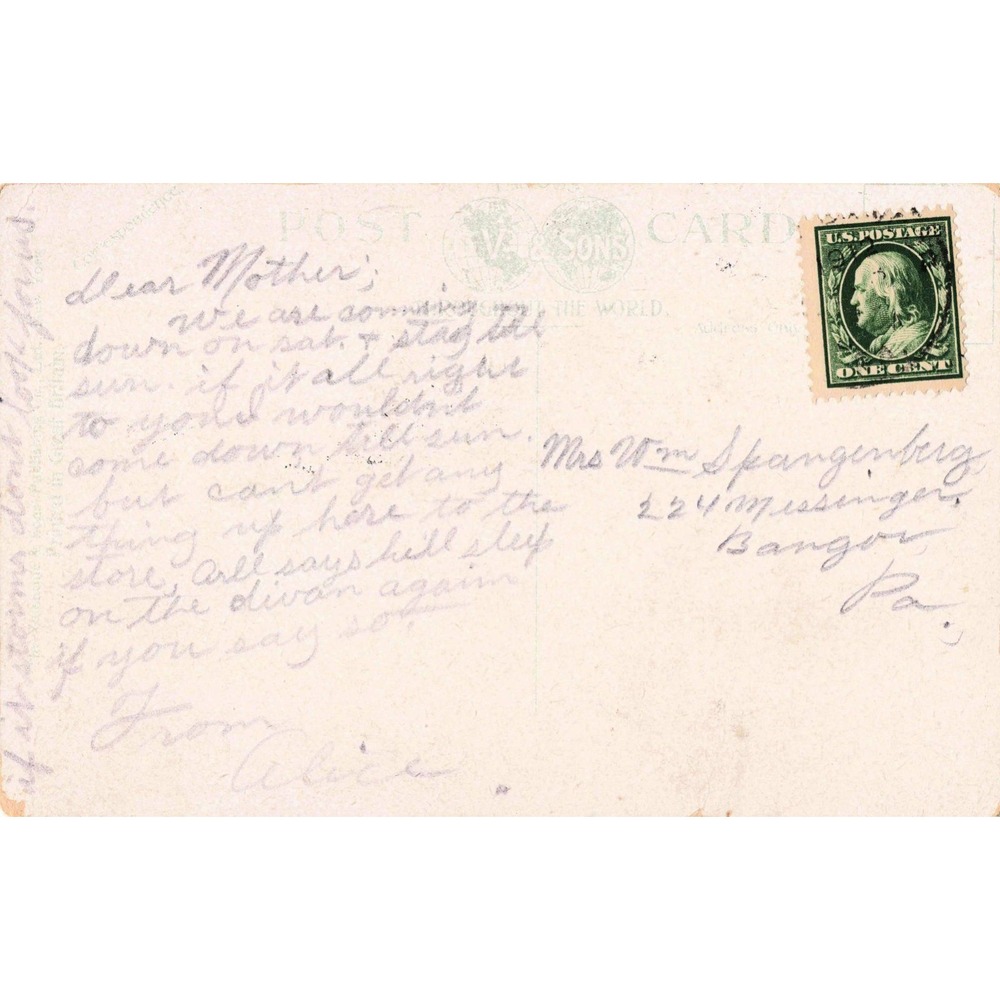 POST CARD
& SONS
THROUGHOUT THE WORLD.
U.S. POSTAGE
ONE CENT
dear Mother;
We are comming
down on sat. + stay till
sun. if it all right
to you wouldnt
come down till sun.
but cant get any
thing up here to the
store, says hell sleep
on the divan again
if you say so.
From
Alice
if it storms dont look for us.
Mrs Wm Spangenberg
224 Messinger,
Bangor
Pa.